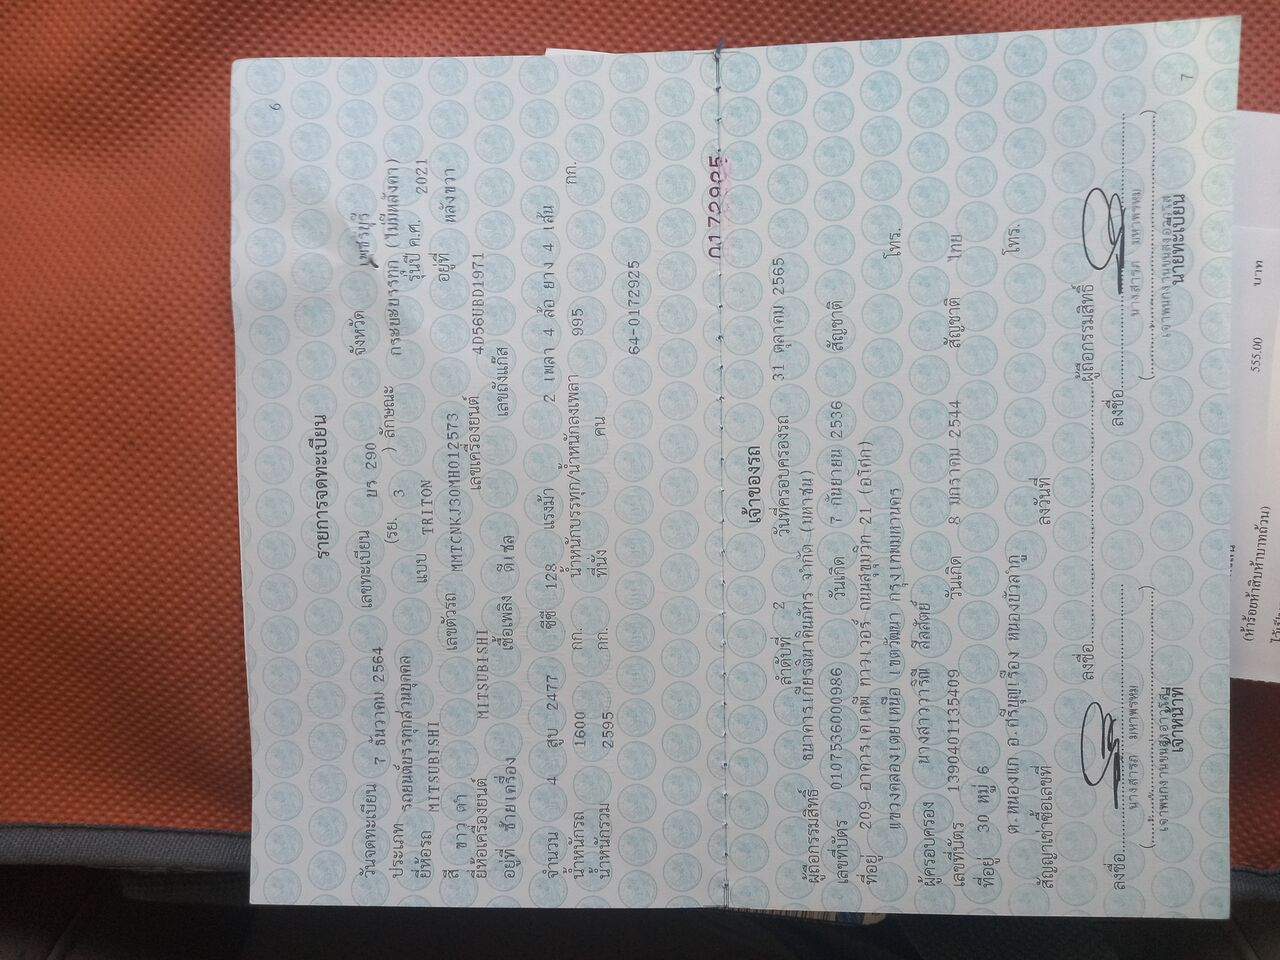 6
รายการจดทะเบียน
วันจดทะเบียน 7 ธันวาคม 2564 เลขทะเบียน บร 290 จังหวัด เพชรบุรี
ประเภท รถยนต์บรรทุกส่วนบุคคล (รย. 3 ) ลักษณะ กระบะบรรทุก (ไม่มีหลังคา)
ยี่ห้อรถ MITSUBISHI แบบ TRITON รุ่นปี ค.ศ. 2021
สี ขาว ดำ เลขตัวรถ MMTCNKJ30MH012573 อยู่ที่ หลังขวา
ยี่ห้อเครื่องยนต์ MITSUBISHI เลขเครื่องยนต์ 4D56UBD1971
อยู่ที่ ซ้ายเครื่อง เชื้อเพลิง ดีเซล เลขถังแก๊ส
จำนวน 4 สูบ 2477 ซีซี 128 แรงม้า 2 เพลา 4 ล้อ ยาง 4 เส้น
น้ำหนักรถ 1600 กก. น้ำหนักบรรทุก/น้ำหนักลงเพลา 995 กก.
น้ำหนักรวม 2595 กก. ที่นั่ง คน
64-0172925
0172925
เจ้าของรถ
ลำดับที่ 2 วันที่ครอบครองรถ 31 ตุลาคม 2565
ผู้ถือกรรมสิทธิ์ ธนาคารเกียรตินาคินภัทร จำกัด (มหาชน)
เลขที่บัตร 0107536000986 วันเกิด 7 กันยายน 2536 สัญชาติ
ที่อยู่ 209 อาคารเคเคพี ทาวเวอร์ ถนนสุขุมวิท 21 (อโศก)
แขวงคลองเตยเหนือ เขตวัฒนา กรุงเทพมหานคร โทร.
ผู้ครอบครอง นางสาววารินี ลีลสัตย์
เลขที่บัตร 1390401135409 วันเกิด 8 มกราคม 2544 สัญชาติ ไทย
ที่อยู่ 30 หมู่ 6
ต.หนองแก อ.ศรีบุญเรือง หนองบัวลำภู โทร.
สัญญาเช่าซื้อเลขที่ ลงวันที่
ลงชื่อ ผู้ถือกรรมสิทธิ์
ลงชื่อ ลงชื่อ
นางสารภี มหาพรหม นางสารภี มหาพรหม
เจ้าหน้าที่ นายทะเบียน
7
555.00 บาท
(ห้าร้อยห้าสิบห้าบาทถ้วน)